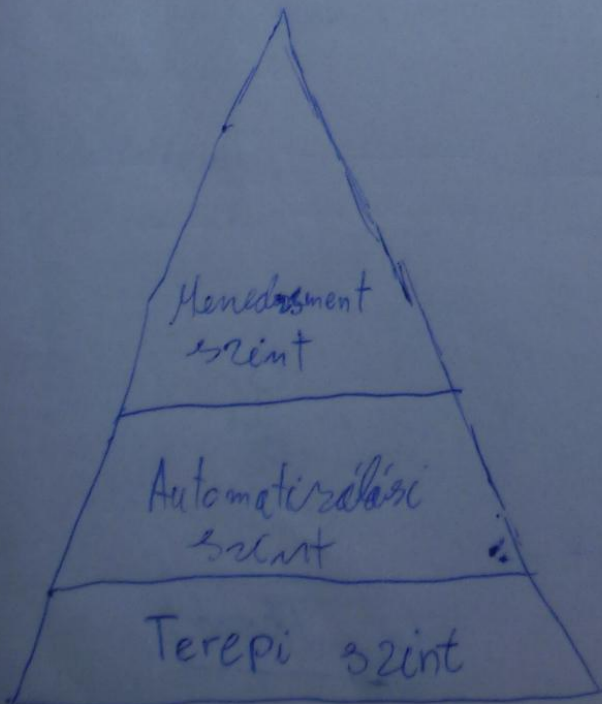 Menedzsment
szint
Automatizálási
szint
Terepi szint